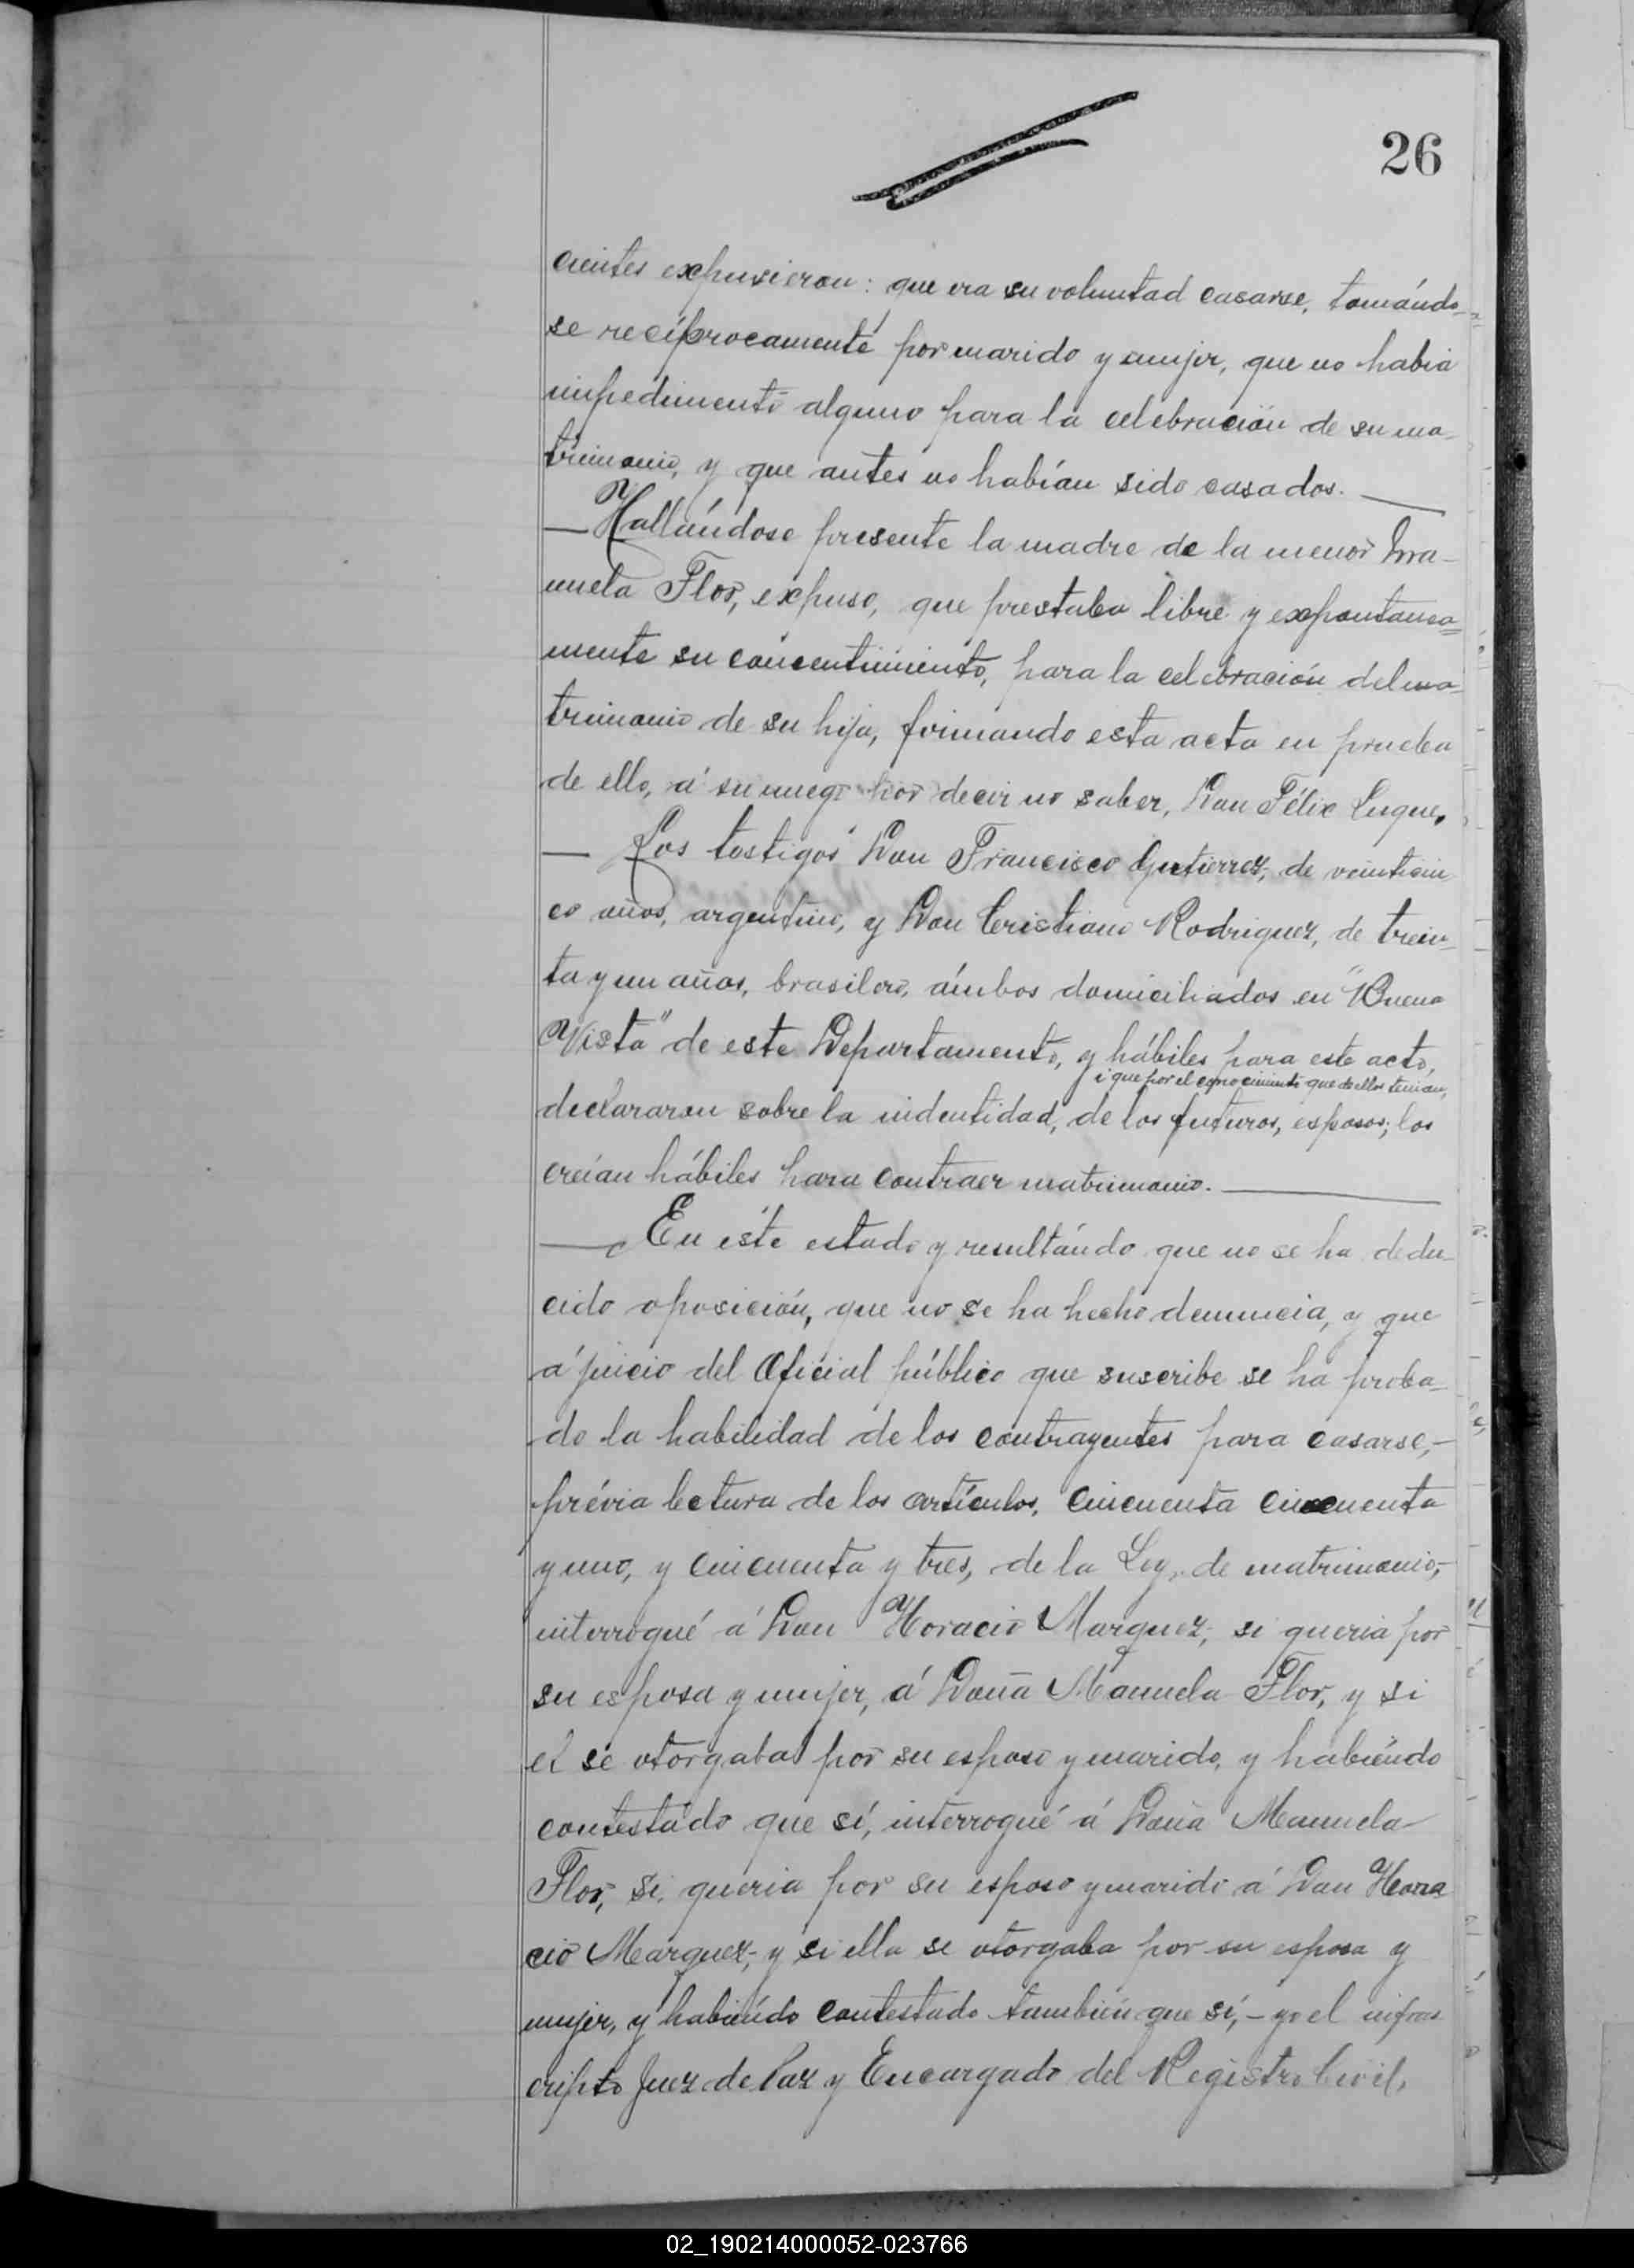 26
cientes expusieron: que era su voluntad casarse, tomándo-
se recíprocamente por marido y mujer, que no habia
impedimento alguno para la celebración de su ma-
trimonio, y que antes no habían sido casados.
Hallándose presente la madre de la menor Ma-
nuela Flor, expuso, que prestaba libre y expontanea-
mente su concentimiento, para la celebración del ma-
trimonio de su hija, firmando esta acta en prueba
de ello, á su ruego por decir no saber, Don Félix Luque.
Los testigos Don Francisco Gutierrez, de veinticin
co años, argentino, y Don Cristiano Rodriguez, de trein-
ta y un años, brasilero, ámbos domiciliados en "Buena
Vista" de este Departamento, y hábiles para este acto,
i que por el conocimiento que de ellos tenian,
declararon sobre la indentidad, de los futuros, esposos; los
creían hábiles para contraer matrimonio.
En éste estado y resultándo que no se ha dedu-
cido oposición, que no se ha hecho denuncia, y que
á juicio del Oficial público que suscribe se ha proba-
do la habilidad de los contrayentes para casarse,-
prévia lectura de los artículos, cincuenta cincuenta
y uno, y cincuenta y tres, de la Ley, de matrimonio,-
interrogué á Don Horacio Marquez, si queria por
su esposa y mujer, á Doña Manuela Flor, y si
el se otorgaba por su esposo y marido, y habiéndo
contestado que sí, interrogué á Doña Manuela
Flor, si queria por su esposo y marido á Don Hora
cio Marquez, y si ella se otorgaba por su esposa y
mujer, y habiéndo contestado también que sí,- yo el infras
cripto Juez de Paz y Encargado del Registro Civil,
02_190214000052-023766